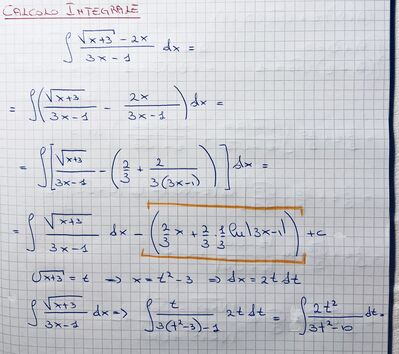 CALCOLO INTEGRALE
∫ (√(x+3) - 2x)/(3x-1) dx =
= ∫ (√(x+3)/(3x-1) - 2x/(3x-1)) dx =
= ∫ [√(x+3)/(3x-1) - (2/3 + 2/(3(3x-1)))] dx =
= ∫ √(x+3)/(3x-1) dx - (2/3 x + 2/3 · 1/3 ln|3x-1|) + c
√(x+3) = t ⇒ x = t² - 3 ⇒ dx = 2t dt
∫ √(x+3)/(3x-1) dx ⇒ ∫ t/(3(t²-3)-1) 2t dt = ∫ 2t²/(3t²-10) dt =